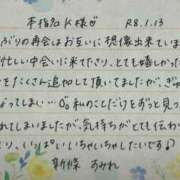 本指名K様が R8.1.13
ぶりの再会はお互いに想像出来ていま
忙しい中会いに来てさり、とても嬉しかった
をたくさん追加して頂いてましたが、ぎゅ
なってしまい…00私のこだわりをずっと見っ
れてしまいましたが、気持ちがとても伝わ
り、いっぱいいちゃいちゃしたいです♪
新條 すみれ